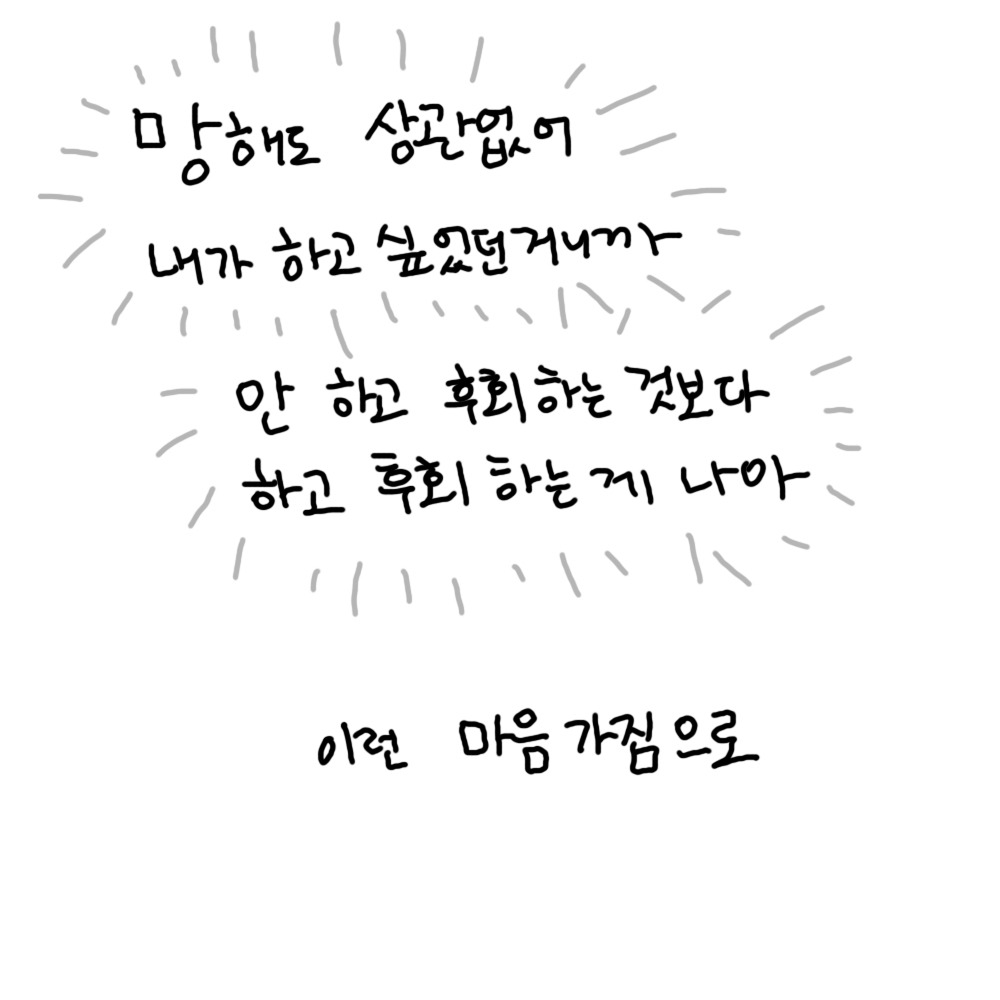 망해도 상관없어
내가 하고 싶었던거니까
안 하고 후회하는 것보다
하고 후회하는게 나아
이런 마음가짐으로